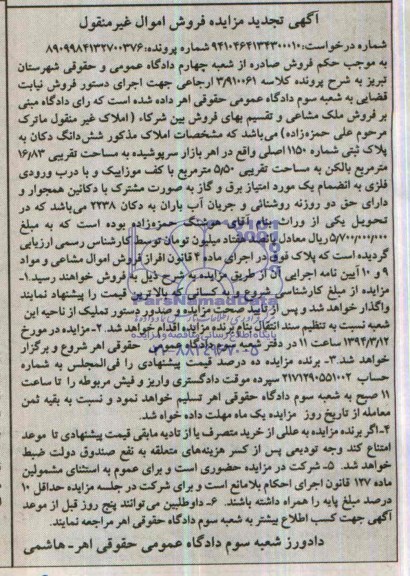 آگهی تجدید مزایده فروش اموال غیرمنقول
شماره درخواست: ۹۴۱۰۴۶۴۱۳۴۳۰۰۰۱۰ شماره پرونده: ۸۹۰۹۹۸۴۱۳۲۷۰۰۳۷۶
به موجب حکم فروش صادره از شعبه چهارم دادگاه عمومی و حقوقی شهرستان
تبریز به شرح پرونده کلاسه ۳/۹۱۰۰۶۱ ارجاعی جهت اجرای دستور فروش نیابت
قضایی به شعبه سوم دادگاه عمومی حقوقی اهر داده شده است که رای دادگاه مبنی
بر فروش ملک مشاعی و تقسیم بهای فروش بین شرکاء ( املاک غیر منقول ماترک
مرحوم علی حمزه‌زاده) می‌باشد که مشخصات املاک مذکور شش‌دانگ دکان به
پلاک ثبتی شماره ۱۱۵۰ اصلی واقع در اهر بازار سرپوشیده به مساحت تقریبی ۱۶/۸۳
مترمربع بالکن به مساحت تقریبی ۵/۵۰ مترمربع با کف موزاییک و با درب ورودی
فلزی به انضمام یک مورد امتیاز برق و گاز به صورت مشترک با دکانین همجوار و
دارای حق دو روزنه روشنائی و جریان آب باران به دکان ۲۲۳۸ می‌باشد که در
تحویل یکی از وراث بنام آقای هوشنگ حمزه‌زاده بوده است که به مبلغ
۵/۷۰۰/۰۰۰/۰۰۰ ریال معادل پانصد هفتاد میلیون تومان توسط کارشناس رسمی ارزیابی
گردیده است که پلاک فوق در اجرای ماده ۴ قانون افراز فروش اموال مشاعی و مواد
۹ و ۱۰ آیین نامه اجرایی آن از طریق مزایده به شرح ذیل به فروش خواهند رسید ۱-
مزایده از مبلغ کارشناسی شروع و به کسانی که بالاترین قیمت را پیشنهاد نمایند
واگذار خواهد شد و پس از تایید صحت مزایده و صدور دستور تملیک از ناحیه این
شعبه نسبت به تنظیم سند انتقال بنام برنده مزایده اقدام خواهد شد. ۲- مزایده در مورخ
۱۳۹۴/۳/۱۲ ساعت ۱۱ در دفتر شعبه سوم دادگاه عمومی حقوقی اهر شروع و برگزار
خواهد شد ۳- برنده مزایده ده درصد قیمت پیشنهادی را فی‌المجلس به شماره
حساب ۲۱۷۱۲۹۰۵۵۱۰۰۲ سپرده موقت دادگستری واریز و فیش مربوطه را تا ساعت
۱۱ صبح به شعبه سوم دادگاه حقوقی اهر تسلیم خواهد نمود و نسبت به بقیه ثمن
معامله از تاریخ روز مزایده یک ماه مهلت داده خواه شد.
۴-اگر برنده مزایده به عللی از خرید متصرف یا از تادیه مابقی قیمت پیشنهادی تا موعد
امتناع کند وجه تودیعی پس از کسر هزینه‌های متعلقه به نفع صندوق دولت ضبط
خواهد شد. ۵- شرکت در مزایده حضوری است و برای عموم به استثنای مشمولین
ماده ۱۲۷ قانون اجرای احکام بلامانع است و برای شرکت در جلسه مزایده حداقل ۱۰
درصد مبلغ پایه را همراه داشته باشند. ۶- داوطلبین می‌توانند پنج روز قبل از موعد
آگهی جهت کسب اطلاع بیشتر به شعبه سوم دادگاه حقوقی اهر مراجعه نمایند.
دادورز شعبه سوم دادگاه عمومی حقوقی اهر- هاشمی
ParsNamadData
۰۲۱-۸۸۳۴۹۶۷۰-۵